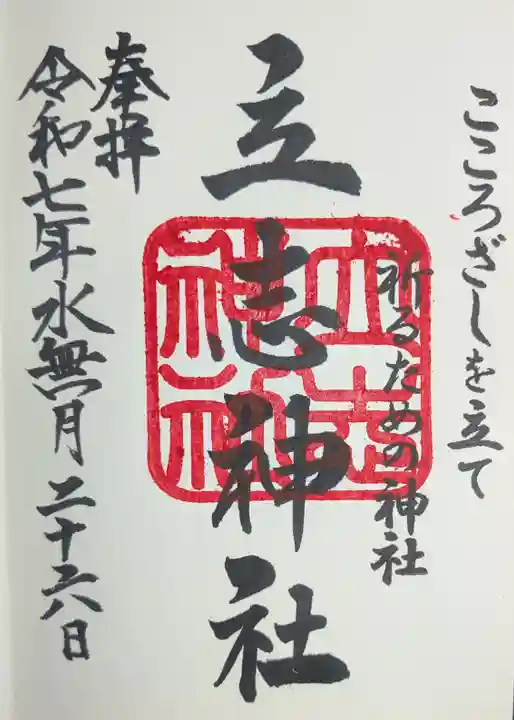 こころざしを立て
祈るための神社
立志神社
立志
神社
奉拝
令和七年水無月二十六日